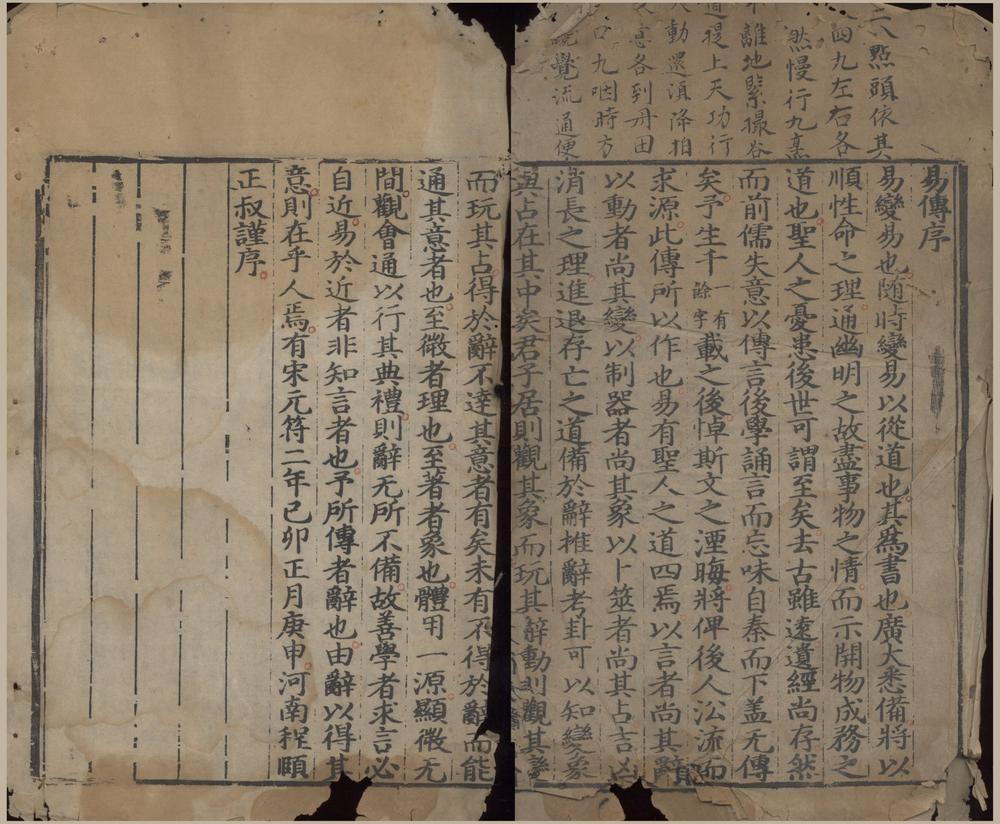 二八點頭依其
四九左右各
然慢行九熏
不離地緊撮谷
道提上天功行
動還湏降拍
意各到丹田
口九咽時方
覺流通便
易傳序
易變易也随時變易以從道也其為書也廣大悉備將以
順性命之理通幽明之故盡事物之情而示開物成務之
道也聖人之憂患後世可謂至矣去古雖逺遺經尚存然
而前儒失意以傳言後學誦言而忘味自秦而下盖无傳
矣予生千一有餘字載之後悼斯文之湮晦將俾後人㳂流而
求源此傳所以作也易有聖人之道四焉以言者尚其辭
以動者尚其變以制器者尚其象以卜筮者尚其占吉凶
消長之理進退存亡之道備於辭推辭考卦可以知變象
與占在其中矣君子居則觀其象而玩其辭動則觀其變
而玩其占得於辭不達其意者有矣未有不得於辭而能
通其意者也至微者理也至著者象也體用一源顯微无
間觀會通以行其典禮則辭无所不備故善學者求言必
自近易於近者非知言者也予所傳者辭也由辭以得其
意則在乎人焉有宋元符二年己卯正月庚申河南程頤
正叔謹序